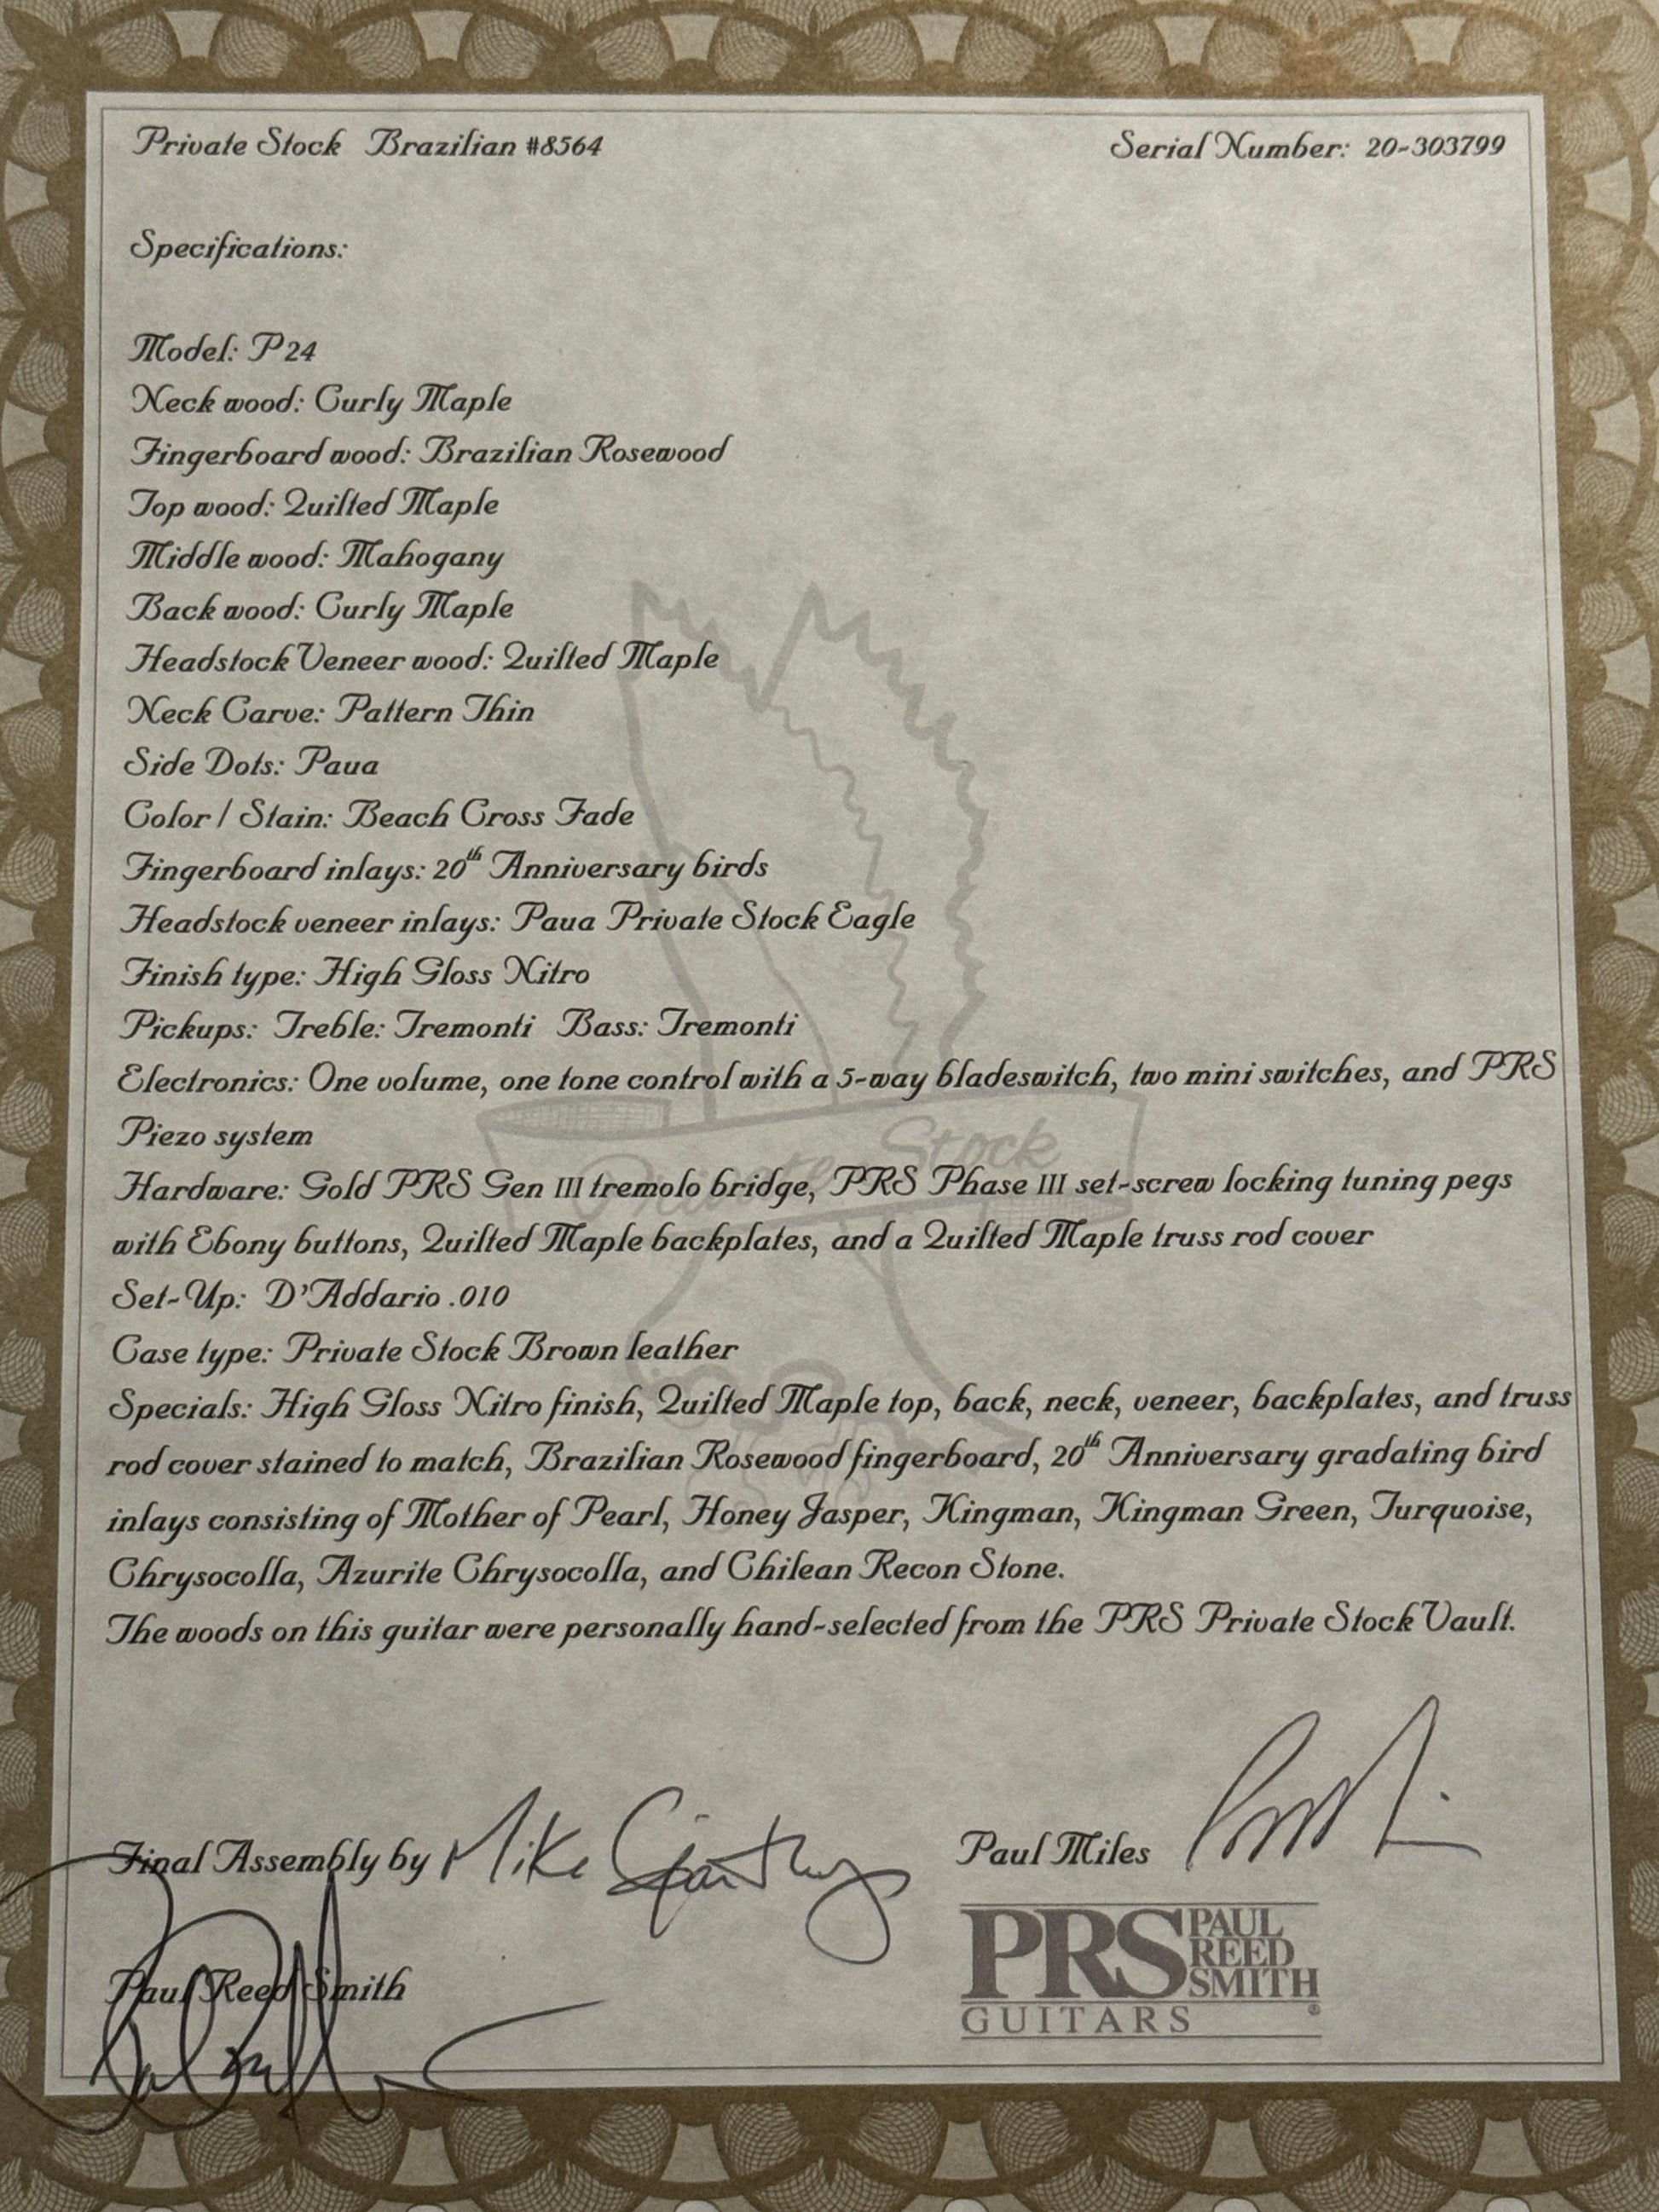 Private Stock Brazilian #8564
Serial Number: 20-303799
Specifications:
Model: P24
Neck wood: Curly Maple
Fingerboard wood: Brazilian Rosewood
Top wood: Quilted Maple
Middle wood: Mahogany
Back wood: Curly Maple
Headstock Veneer wood: Quilted Maple
Neck Carve: Pattern Thin
Side Dots: Paua
Color / Stain: Beach Cross Fade
Fingerboard inlays: 20th Anniversary birds
Headstock veneer inlays: Paua Private Stock Eagle
Finish type: High Gloss Nitro
Pickups: Treble: Tremonti Bass: Tremonti
Electronics: One volume, one tone control with a 5-way bladeswitch, two mini switches, and PRS
Piezo system
Hardware: Gold PRS Gen III tremolo bridge, PRS Phase III set-screw locking tuning pegs
with Ebony buttons, Quilted Maple backplates, and a Quilted Maple truss rod cover
Set-Up: D'Addario .010
Case type: Private Stock Brown leather
Specials: High Gloss Nitro finish, Quilted Maple top, back, neck, veneer, backplates, and truss
rod cover stained to match, Brazilian Rosewood fingerboard, 20th Anniversary gradating bird
inlays consisting of Mother of Pearl, Honey Jasper, Kingman, Kingman Green, Turquoise,
Chrysocolla, Azurite Chrysocolla, and Chilean Recon Stone.
The woods on this guitar were personally hand-selected from the PRS Private Stock Vault.
Private Stock
Final Assembly by Mike
Paul Miles
Paul Reed Smith
PRS PAUL
REED
SMITH
GUITARS